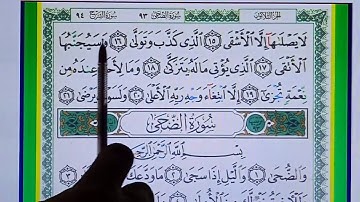 الجزء الثلاثون سورة الضحى ٩٣ سورة الشرح ٩٤
لَا يَصْلَىٰهَآ إِلَّا ٱلْأَشْقَى ١٥ ٱلَّذِى كَذَّبَ وَتَوَلَّىٰ ١٦ وَسَيُجَنَّبُهَا
ٱلْأَتْقَى ١٧ ٱلَّذِى يُؤْتِى مَالَهُۥ يَتَزَكَّىٰ ١٨ وَمَا لِأَحَدٍ عِندَهُۥ مِن
نِّعْمَةٍ تُجْزَىٰٓ ١٩ إِلَّا ٱبْتِغَآءَ وَجْهِ رَبِّهِ ٱلْأَعْلَىٰ ٢٠ وَلَسَوْفَ يَرْضَىٰ
سُورَةُ ٱلضُّحَىٰ
بِسْمِ ٱللَّهِ ٱلرَّحْمَٰنِ ٱلرَّحِيمِ
وَٱلضُّحَىٰ ١ وَٱلَّيْلِ إِذَا سَجَىٰ ٢ مَا وَدَّعَكَ ٣